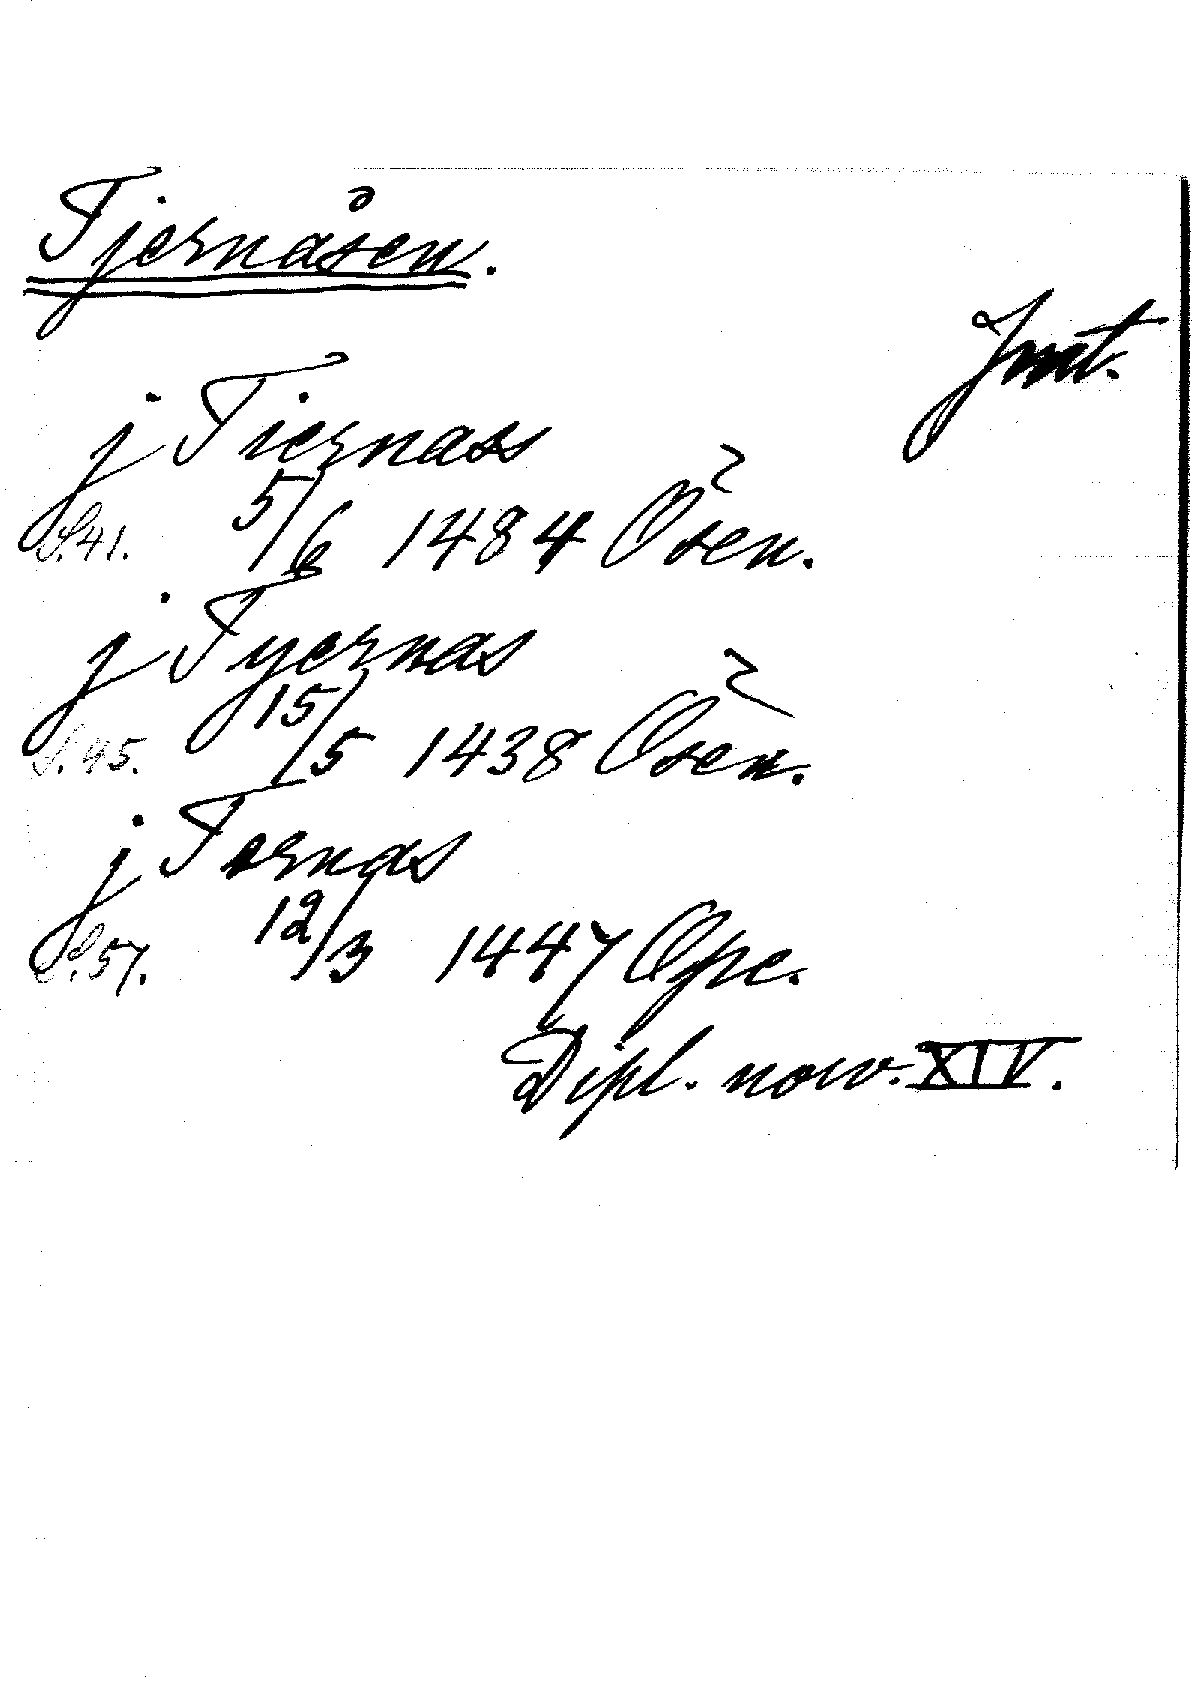 Tjernåsen.
Jmt.
j Tiernass
S. 41. 5/6 1484 Ösen.
j Tyernas
S. 45. 15/5 1438 Ösen.
j Ternas
S. 57. 12/3 1447 Ope.
Dipl. norv. XIV.